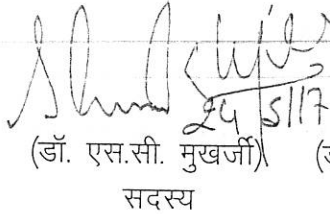 24/5/17
(डॉ. एस.सी. मुखर्जी) (ड
सदस्य